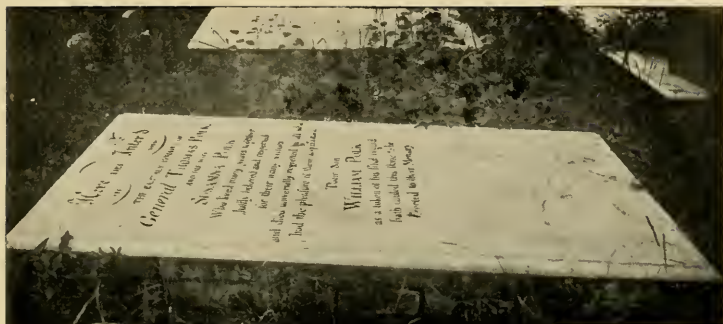 Here lies Inter'd
THE EARTHLY REMAINS OF
General THOMAS POLK
AND HIS WIFE
SUSANNA POLK
Who lived many years together
Justly beloved and respected
for their many virtues
and universally regretted by all who
had the pleasure of their
Their Son
WILLIAM POLK
as a token of his filial regard
hath caused this stone to be
Erected to their Memory